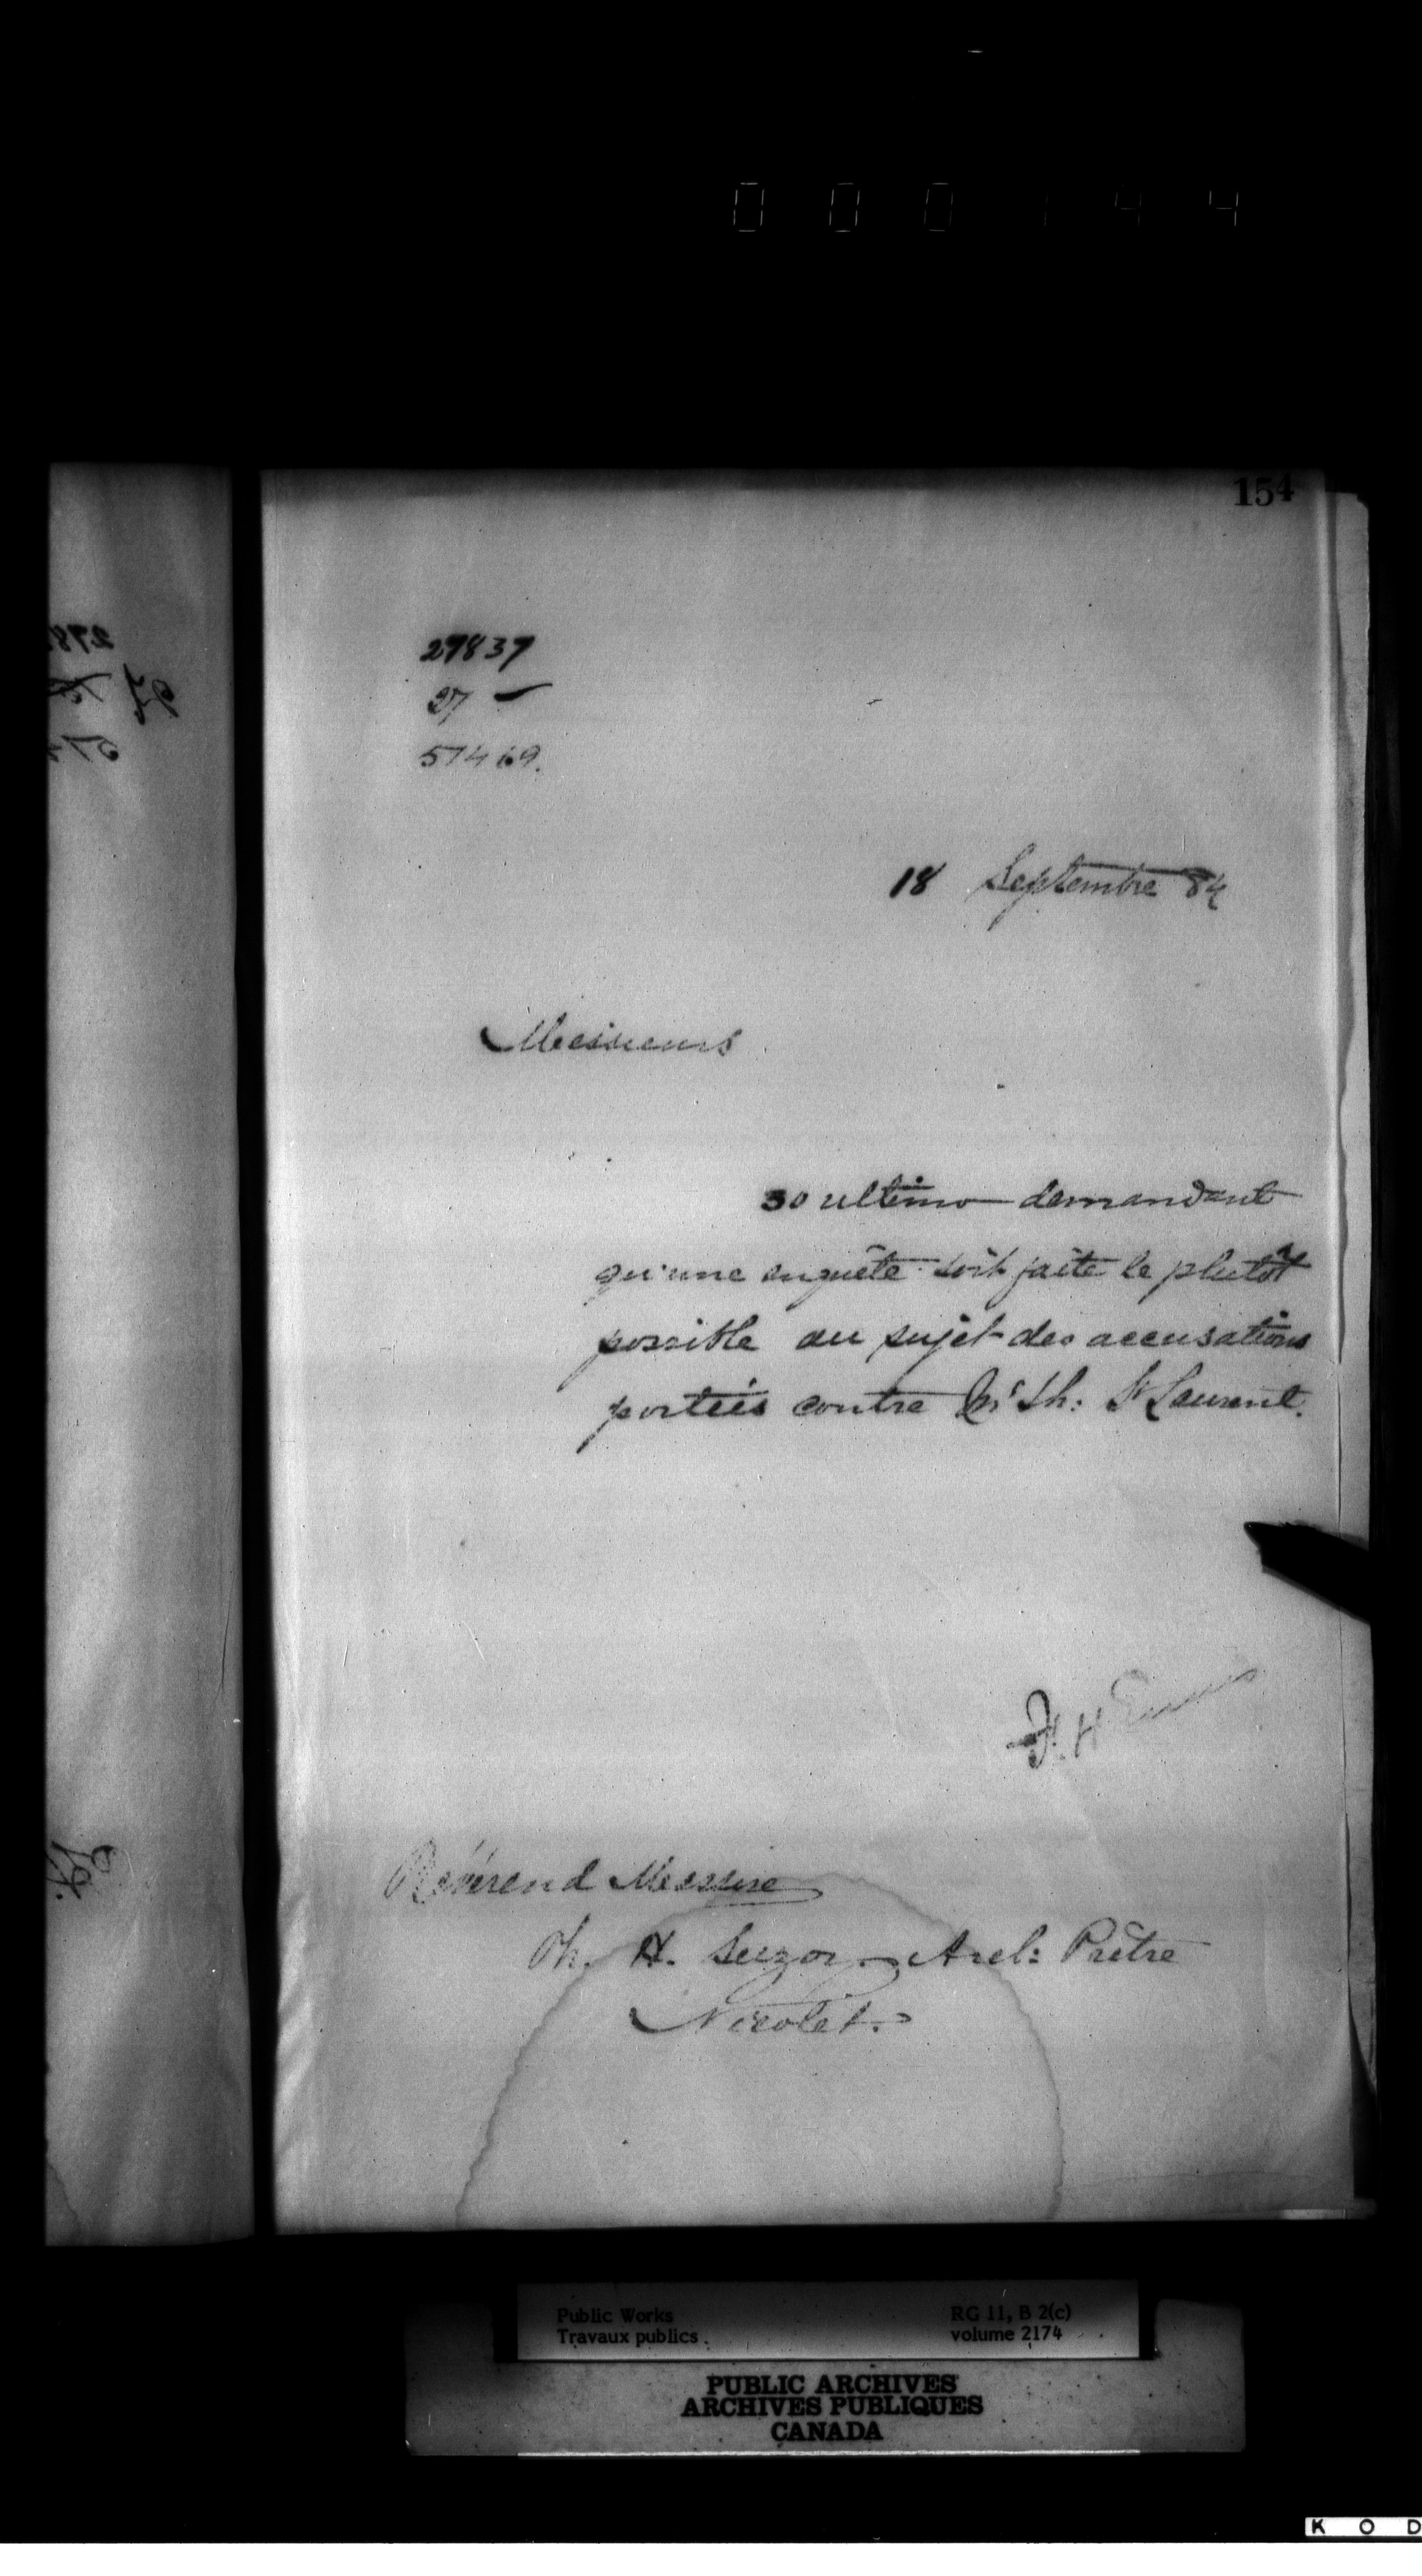 000144
154
27837
27 —
57469.
18 Septembre 84
Messieurs
30 ultimo demandant
qu'une enquête soit faite le plutôt
possible au sujet des accusations
portées contre Mr Th: St Laurent.
F. H. Ennis
Révérend Messire
Th. H. Suzor. Arch: Prêtre
Nicolet.
Public Works
Travaux publics
RG 11, B 2(c)
volume 2174
PUBLIC ARCHIVES
ARCHIVES PUBLIQUES
CANADA
K O D